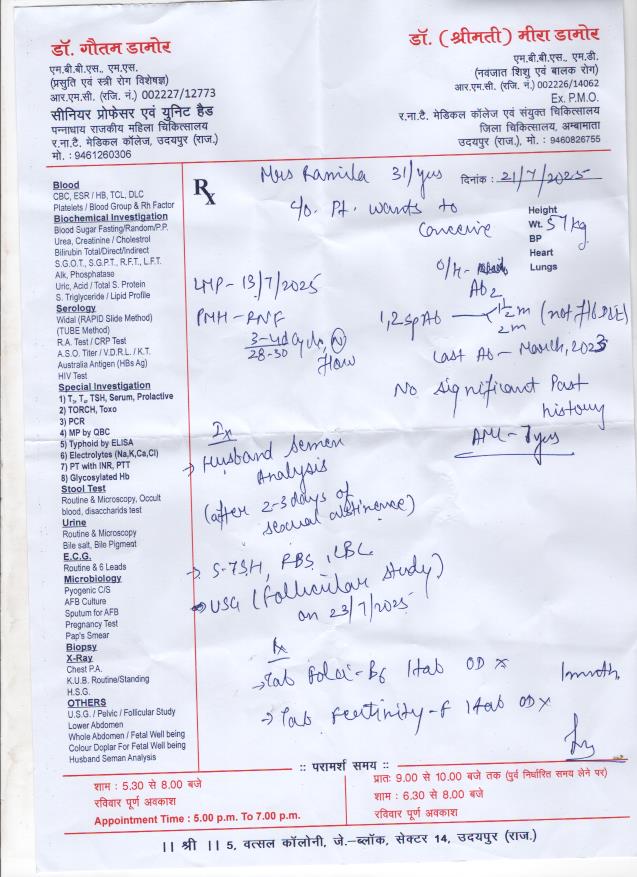 डॉ. गौतम डामोर
एम.बी.बी.एस., एम.एस.
(प्रसुति एवं स्त्री रोग विशेषज्ञ)
आर.एम.सी. (रजि. नं.) 002227/12773
सीनियर प्रोफेसर एवं युनिट हैड
पन्नाधाय राजकीय महिला चिकित्सालय
र.ना.टै. मेडिकल कॉलेज, उदयपुर (राज.)
मो. : 9461260306
डॉ. (श्रीमती) मीरा डामोर
एम.बी.बी.एस., एम.डी.
(नवजात शिशु एवं बालक रोग)
आर.एम.सी. (रजि. नं.) 002226/14062
Ex. P.M.O.
र.ना.टै. मेडिकल कॉलेज एवं संयुक्त चिकित्सालय
जिला चिकित्सालय, अम्बामाता
उदयपुर (राज.), मो. : 9460826755
Blood
CBC, ESR / HB, TCL, DLC
Platelets / Blood Group & Rh Factor
Biochemical Investigation
Blood Sugar Fasting/Random/P.P.
Urea, Creatinine / Cholestrol
Bilirubin Total/Direct/Indirect
S.G.O.T., S.G.P.T., R.F.T., L.F.T.
Alk, Phosphatase
Uric, Acid / Total S. Protein
S. Triglyceride / Lipid Profile
Serology
Widal (RAPID Slide Method)
(TUBE Method)
R.A. Test / CRP Test
A.S.O. Titer / V.D.R.L. / K.T.
Australia Antigen (HBs Ag)
HIV Test
Special Investigation
1) T₃, T₄, TSH, Serum, Prolactive
2) TORCH, Toxo
3) PCR
4) MP by QBC
5) Typhoid by ELISA
6) Electrolytes (Na,K,Ca,Cl)
7) PT with INR, PTT
8) Glycosylated Hb
Stool Test
Routine & Microscopy, Occult
blood, disaccharids test
Urine
Routine & Microscopy
Bile salt, Bile Pigment
E.C.G.
Routine & 6 Leads
Microbiology
Pyogenic C/S
AFB Culture
Sputum for AFB
Pregnancy Test
Pap's Smear
Biopsy
X-Ray
Chest P.A.
K.U.B. Routine/Standing
H.S.G.
OTHERS
U.S.G. / Pelvic / Follicular Study
Lower Abdomen
Whole Abdomen / Fetal Well being
Colour Doplar For Fetal Well being
Husband Seman Analysis
Rx
Mrs Ramila 31/yrs दिनांक : 21/7/2025
c/o. Pt. wants to
conceive
Height
Wt. 57 kg
BP
Heart
Lungs
O/H -
Ab2
LMP - 13/7/2025
1,2 sp Ab 1½ m
2m
PMH - RNF
3-4d cycle, (N)
28-30 flow
Last Ab - March, 2023
No significant Past
history
AML - 7 yrs
Ix
→ Husband Semen
Analysis
(after 2-3 days of
sexual abstinence)
→ S-TSH, RBS,
→ USG (Follicular Study)
on 23/7/2025
Rx
→ Tab Folci-B6 1 tab OD x 1 month
→ Tab Fertinity-F 1 tab OD x
:: परामर्श समय ::
शाम : 5.30 से 8.00 बजे
रविवार पूर्ण अवकाश
Appointment Time : 5.00 p.m. To 7.00 p.m.
प्रातः 9.00 से 10.00 बजे तक (पुर्व निर्धारित समय लेने पर)
शाम : 6.30 से 8.00 बजे
रविवार पूर्ण अवकाश
|| श्री || 5, वत्सल कॉलोनी, जे.-ब्लॉक, सेक्टर 14, उदयपुर (राज.)